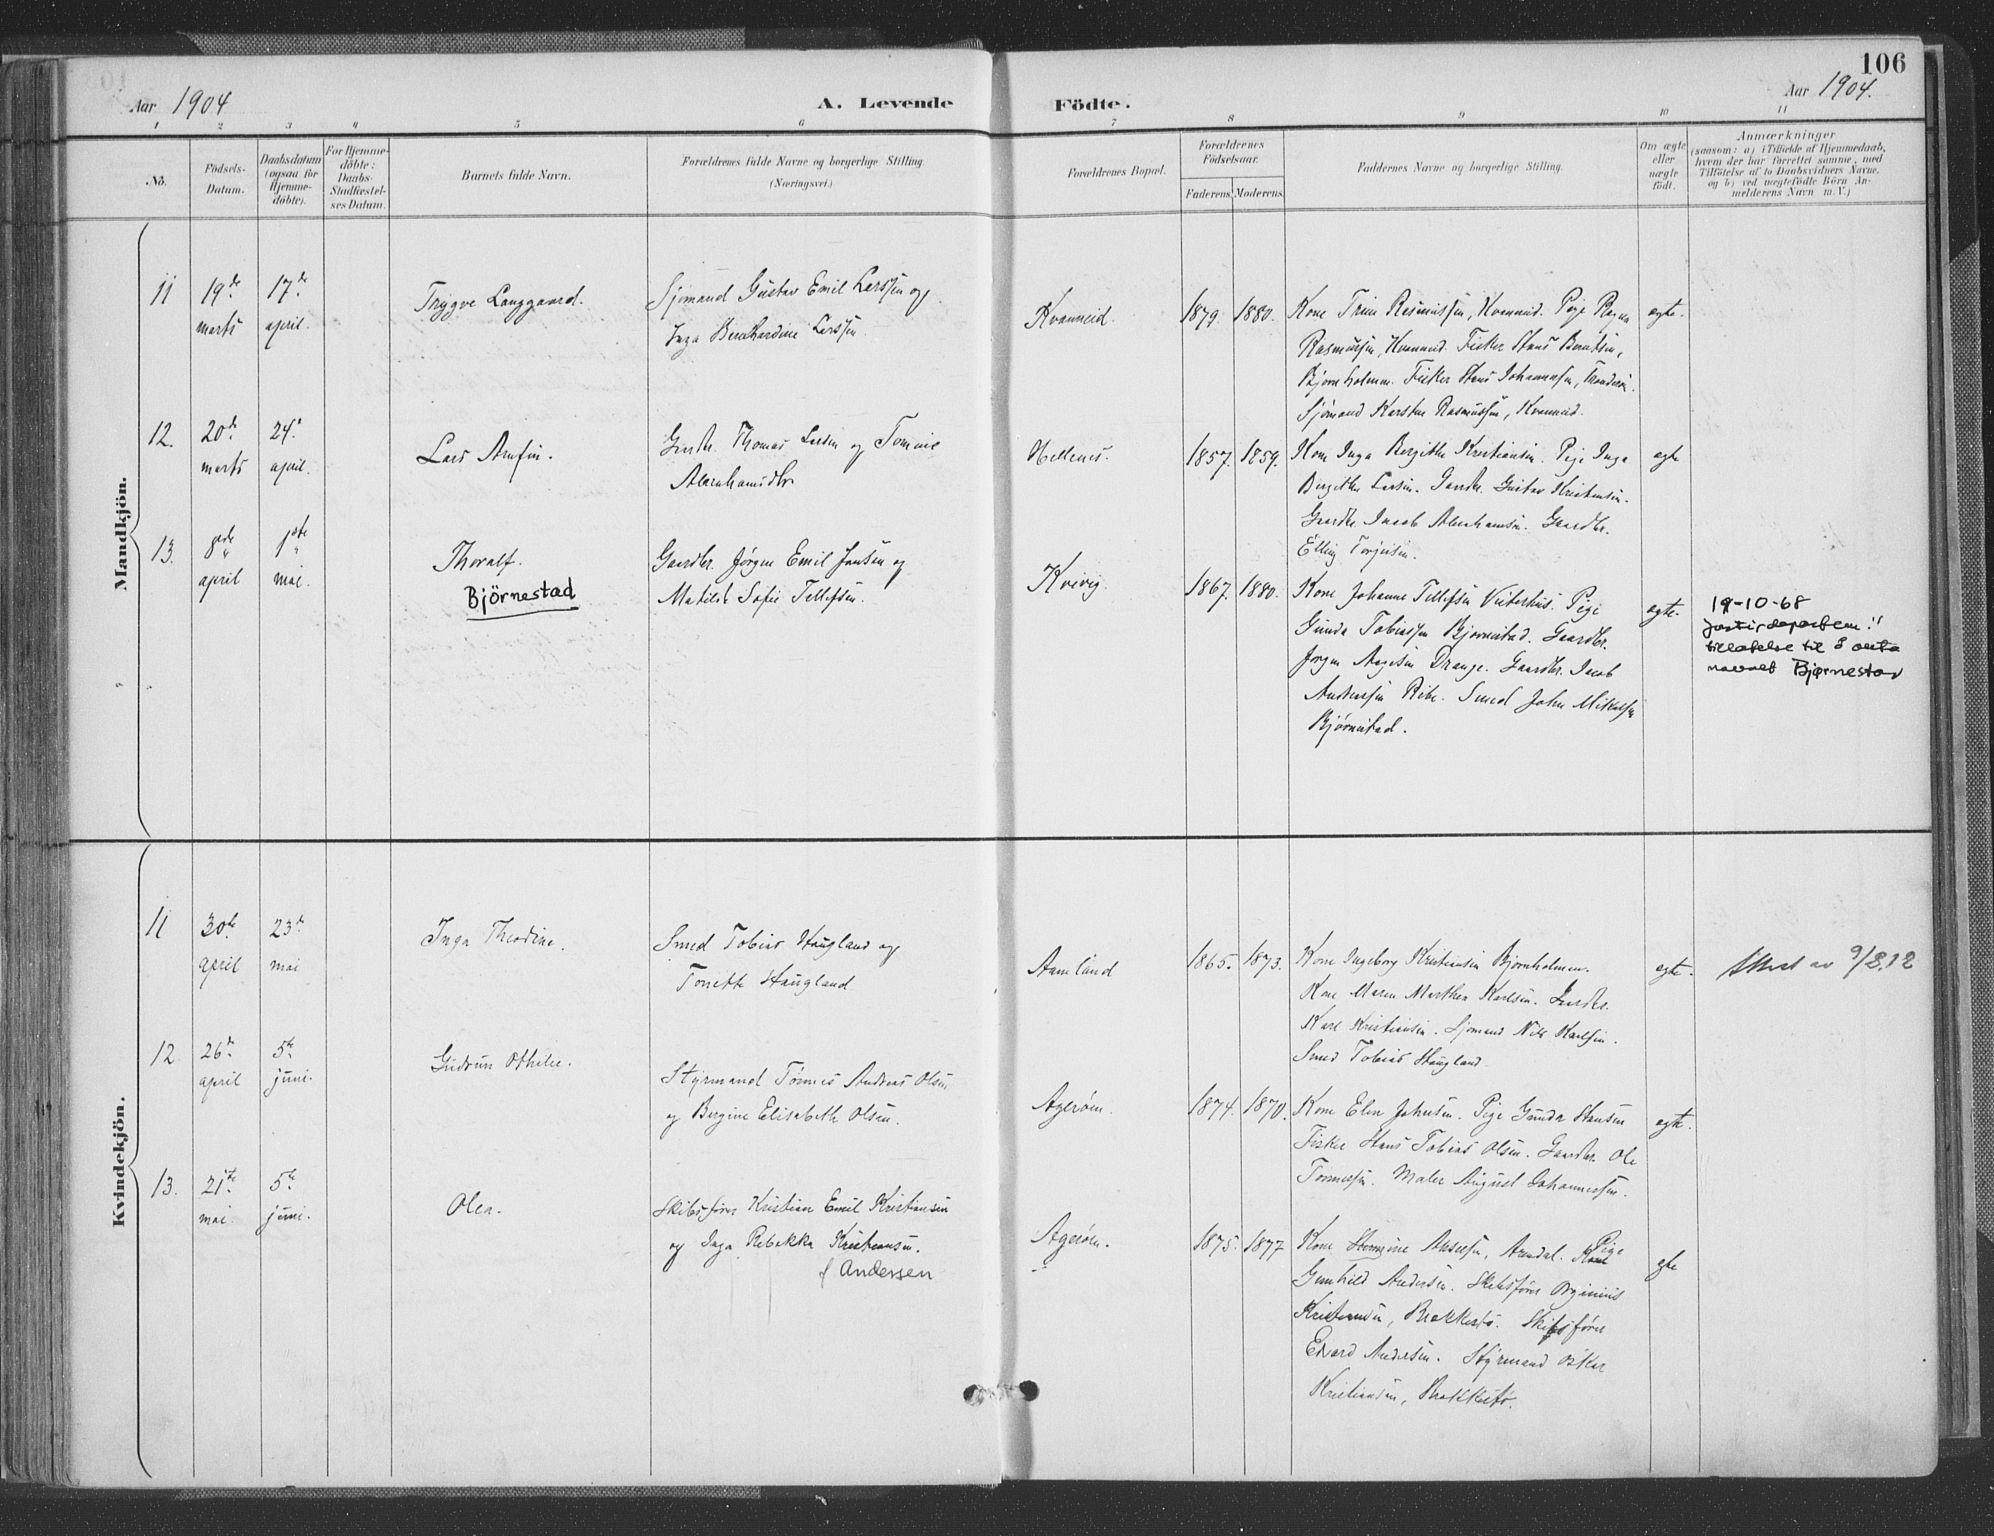 106
Aar 1904
A. Levende
Födte.
Aar 1904.
1 2 3 4 5 6 7 8 9 10 11
No.
Födsels-
Datum.
Daabsdatum
(ogsaa for
Hjemme-
døbte).
For Hjemme-
døbte:
Daabs-
Stadfæstel-
ses Datum.
Barnets fulde Navn.
Forældrenes fulde Navne og borgerlige Stilling
(Næringsvei.)
Forældrenes Bopæl.
Forældrenes
Födselsaar.
Faderens. Moderens.
Faddernes Navne og borgerlige Stilling.
Om ægte
eller
uægte
født.
Anmærkninger
(saasom: a) i Tilfælde af Hjemmedaab,
hvem der har forrettet samme, med
Tilføielse af to Daabsvidners Navne,
og b) ved uægtefødte Börn An-
melderens Navn m. V.)
Mandkjön.
11
19de
marts
17de
april.
Trygve Langgaard.
Sjømand Gustav Emil Larssen og
Inga Bernhardine Larssen
Kvanneid.
1879. 1880.
Kone Trine Rasmussen, Kvanneid. Pige Ragna
Rasmussen, Kvanneid. Fisker Hans Berntsen,
Bjørnholmen. Fisker Hans Johannesen,
Sjømand Karsten Rasmussen, Kvanneid.
ægte.
12.
20de
marts
24.
april.
Lars Arnfin.
Gaardbr. Thomas Larsen og Tomine
Abrahamsdtr
Hellenes.
1857. 1859.
Kone Inga Bergithe Kristiansen. Pige Inga
Bergithe Larsen. Gaardbr. Gustav Kristensen.
Gaardbr. Jacob Abrahamsen. Gaardbr.
Elling Torjusen.
ægte
13.
8de
april
1ste
mai.
Thoralf.
Björnestad
Gaardbr. Jørgen Emil Jansen og
Matilde Sofie Tellefsen.
Kvivig.
1867. 1880.
Kone Johanne Tellefsen Vesterhus. Pige
Gunda Tobiassen Bjørnestad. Gaardbr.
Jørgen Aagesen Drange. Gaardbr. Jacob
Andreassen Ribe. Smed John Mikalsen
Bjørnestad.
ægte.
19-10-68
tillatelse til å anta
navnet Bjørnestad
Kvindekjön.
11
30te
april
23de
mai
Inga Theodine.
Smed Tobias Haugland og
Tonette Haugland
Aamland
1865. 1873.
Kone Ingeborg Kristiansen Bjørnholmen.
Kone Maren Marthea Karlsen. Gaardbr.
Karl Kristiansen. Sjømand Nils Karlsen.
Smed Tobias Haugland.
ægte.
Attest av 9/8.12
12
26de
april
5te
juni.
Gudrun Othilie.
Styrmand Tønnes Andreas Olsen
og Bergine Elisabeth Olsen.
Agerøen.
1874. 1870.
Kone Elen Johnsen. Pige Gunda Hansen
Fisker Hans Tobias Olsen. Gaardbr. Ole
Tønnessen. Maler August Johannessen.
ægte.
13.
21de
mai.
5te
juni.
Olea.
Skibsfører Kristian Emil Kristiansen
og Inga Rebekka Kristiansen.
f Andersen
Agerøen.
1875. 1877
Kone Hermine Axelsen, Arendal. Pige
Gunhild Andersen. Skibsfører
Kristiansen, Brekkestø. Skibsfører
Edvard Andersen. Styrmand Oskar
Kristiansen, Brekkestø.
ægte